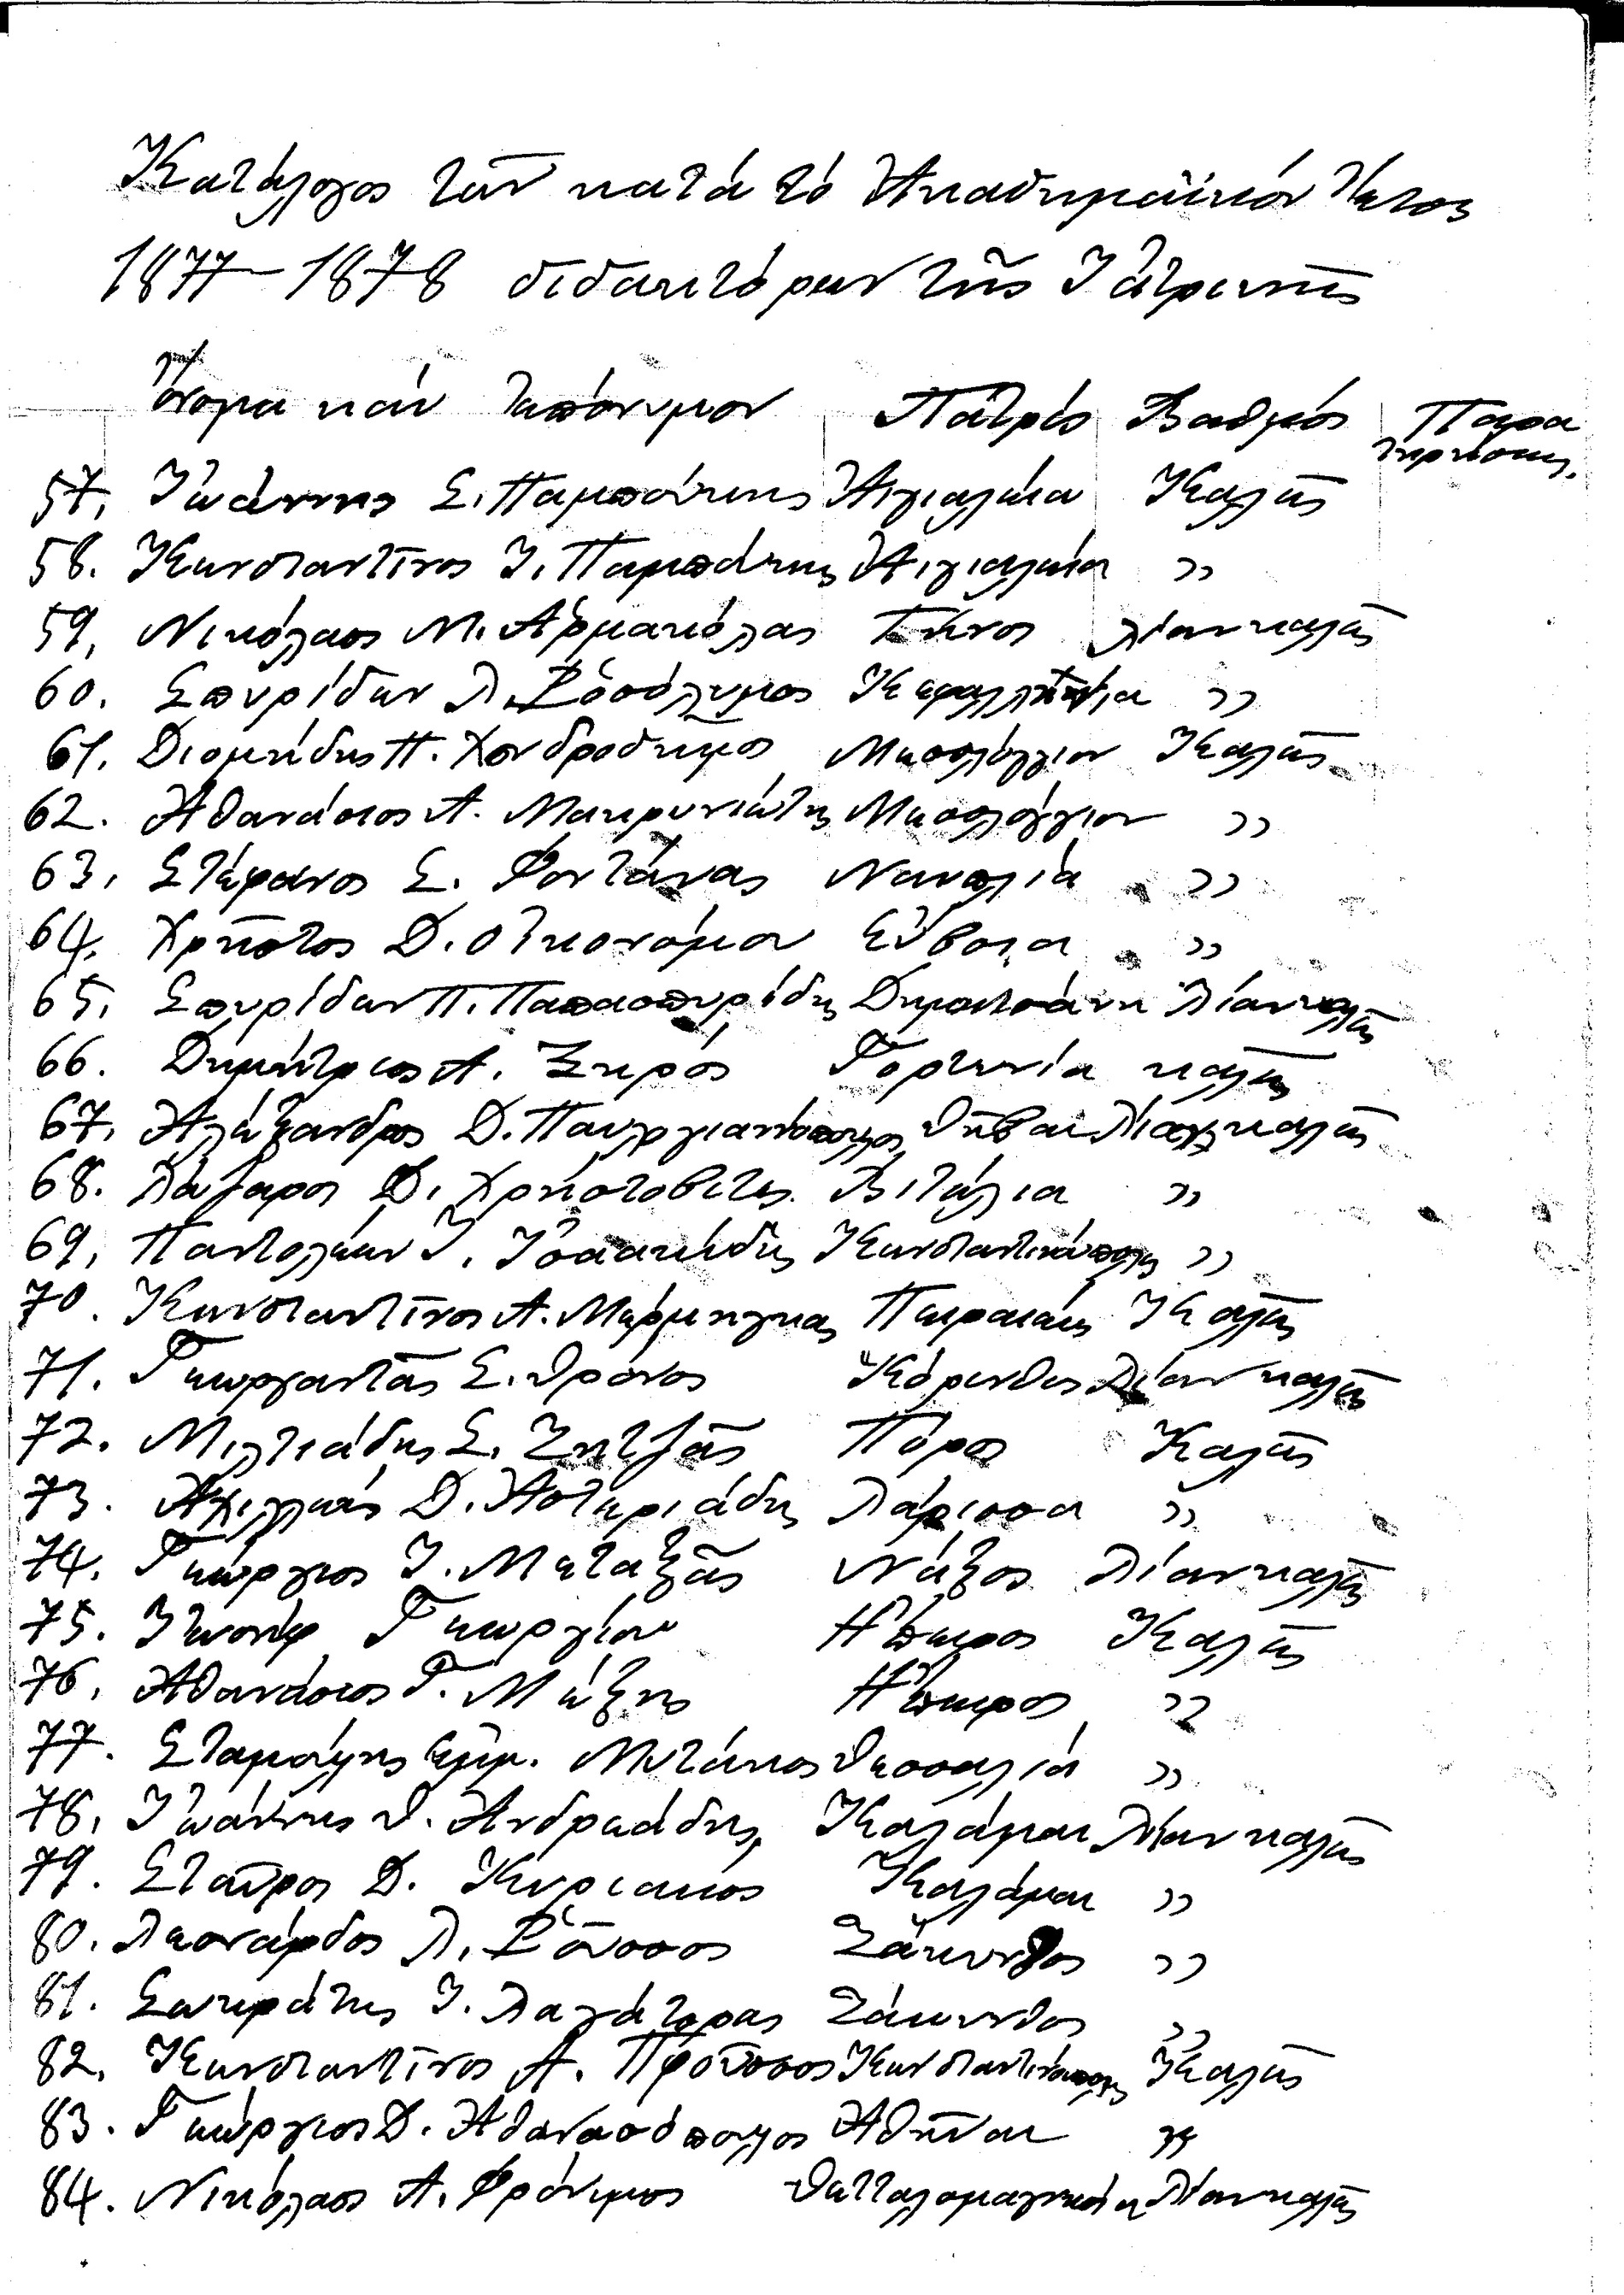 Κατάλογος τῶν κατά τό Ἀκαδημαϊκόν Ἔτος
1877-1878 διδακτόρων τῆς Ἰατρικῆς
Ὄνομα καί Ἐπώνυμον Πατρίς Βαθμός Παρα
τηρήσεις.
57. Ἰωάννης Σ. Παμπούκης Αἰγιαλεία Καλῶς
58. Κωνσταντῖνος Ι. Παμπούκης Αἰγιαλεία »
59. Νικόλαος Μ. Ἀρμακόλας Τῆνος λίαν καλῶς
60. Σπυρίδων Λ. Ῥοσόλυμος Κεφαλληνία »
61. Διομήδης Π. Χονδροδῆμος Μεσολόγγιον Καλῶς
62. Ἀθανάσιος Α. Μακρυνιώτης Μεσολόγγιον »
63. Στέφανος Σ. Φοντάνας Ναυπλία »
64. Χρῆστος Δ. Οἰκονόμου Εὔβοια »
65. Σπυρίδων Π. Παπασπυρίδης Δημητσάνη Λίαν καλῶς
66. Δημήτριος Α. Ξηρός Γορτυνία καλῶς
67. Ἀλέξανδρος Δ. Παυλογιαννόπουλος Θῆβαι Λίαν καλῶς
68. Λάζαρος Δ. Χρηστοβίτης Βιτώλια »
69. Παντολέων Ι. Ἰσαακίδης Κωνσταντινούπολις »
70. Κωνσταντῖνος Α. Μέρμηγκας Πειραιεύς Καλῶς
71. Γεωργαντᾶς Σ. Θρόνος Κόρινθος Λίαν καλῶς
72. Μιλτιάδης Σ. Ζητζᾶς Πόρος Καλῶς
73. Ἀχιλλεύς Δ. Ἀστεριάδης Λάρισσα »
74. Γεώργιος Ι. Μεταξᾶς Νάξος Λίαν καλῶς
75. Ἰωσήφ Γεωργίου Ἤπειρος Καλῶς
76. Ἀθανάσιος Γ. Μέξης Ἤπειρος »
77. Σταμούλης Ἐμμ. Μυτάκος Θεσσαλία »
78. Ἰωάννης Θ. Ἀνδρεάδης Καλάμαι Λίαν καλῶς
79. Σταῦρος Δ. Κυριακός Καλάμαι »
80. Λεονάρδος Λ. Ῥοῦσσος Ζάκυνθος »
81. Σωκράτης Ι. Λαγάτορας Ζάκυνθος »
82. Κωνσταντῖνος Α. Προῦσσος Κωνσταντινούπολις Καλῶς
83. Γεώργιος Δ. Ἀθανασόπουλος Ἀθῆναι »
84. Νικόλαος Α. Φρόνιμος Θετταλομαγνησία Λίαν καλῶς